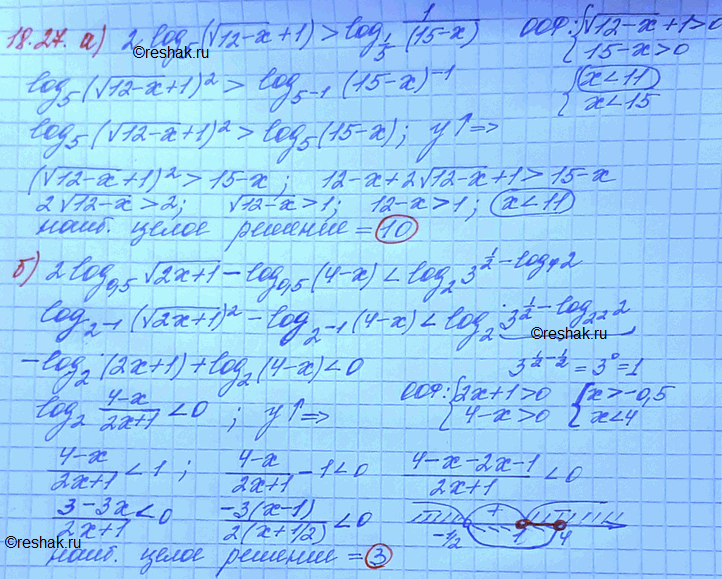 18.27. а) 2 log₅(√(12-x)+1) > log_{1/5} 1/(15-x)  ООФ: {√(12-x)+1>0
©reshak.ru
{15-x>0
log₅(√(12-x)+1)² > log_{5⁻¹}(15-x)⁻¹  {x<11
{x<15
log₅(√(12-x)+1)² > log₅(15-x); y↑⇒
(√(12-x)+1)² > 15-x; 12-x+2√(12-x)+1>15-x
2√(12-x)>2; √(12-x)>1; 12-x>1; x<11
наиб. целое решение = 10
б) 2log_{0,5}√(2x+1) - log_{0,5}(4-x) < log₂ 3^{1/2 - log₄2}
log_{2⁻¹}(√(2x+1))² - log_{2⁻¹}(4-x) < log₂ 3^{1/2 - log_{2²}2}
©reshak.ru
-log₂(2x+1)+log₂(4-x)<0  3^{1/2-1/2} = 3⁰ = 1
log₂ (4-x)/(2x+1) < 0; y↑⇒  ООФ: {2x+1>0 {x>-0,5
{4-x>0 {x<4
(4-x)/(2x+1) < 1; (4-x)/(2x+1) - 1 < 0  (4-x-2x-1)/(2x+1) < 0
(3-3x)/(2x+1) < 0  -3(x-1)/2(x+1/2) < 0  +
-1/2 1 4
©reshak.ru
наиб. целое решение = 3
©reshak.ru